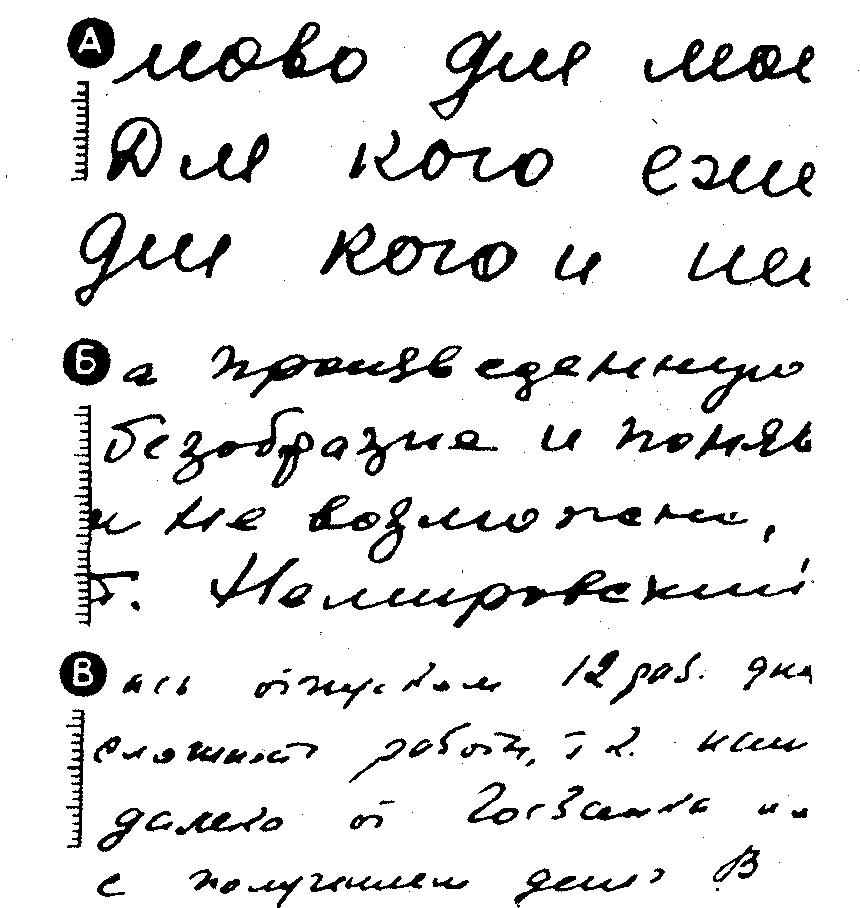 А
ново для мое
Для кого еже
для кого и не
Б
а произведенную
безобразие и понять
и не возможно,
Т. Немировский
В
ись отпуском 12 раб. дня
сложность работы, т.к. наш
далеко от Госбанка
с получением денег В